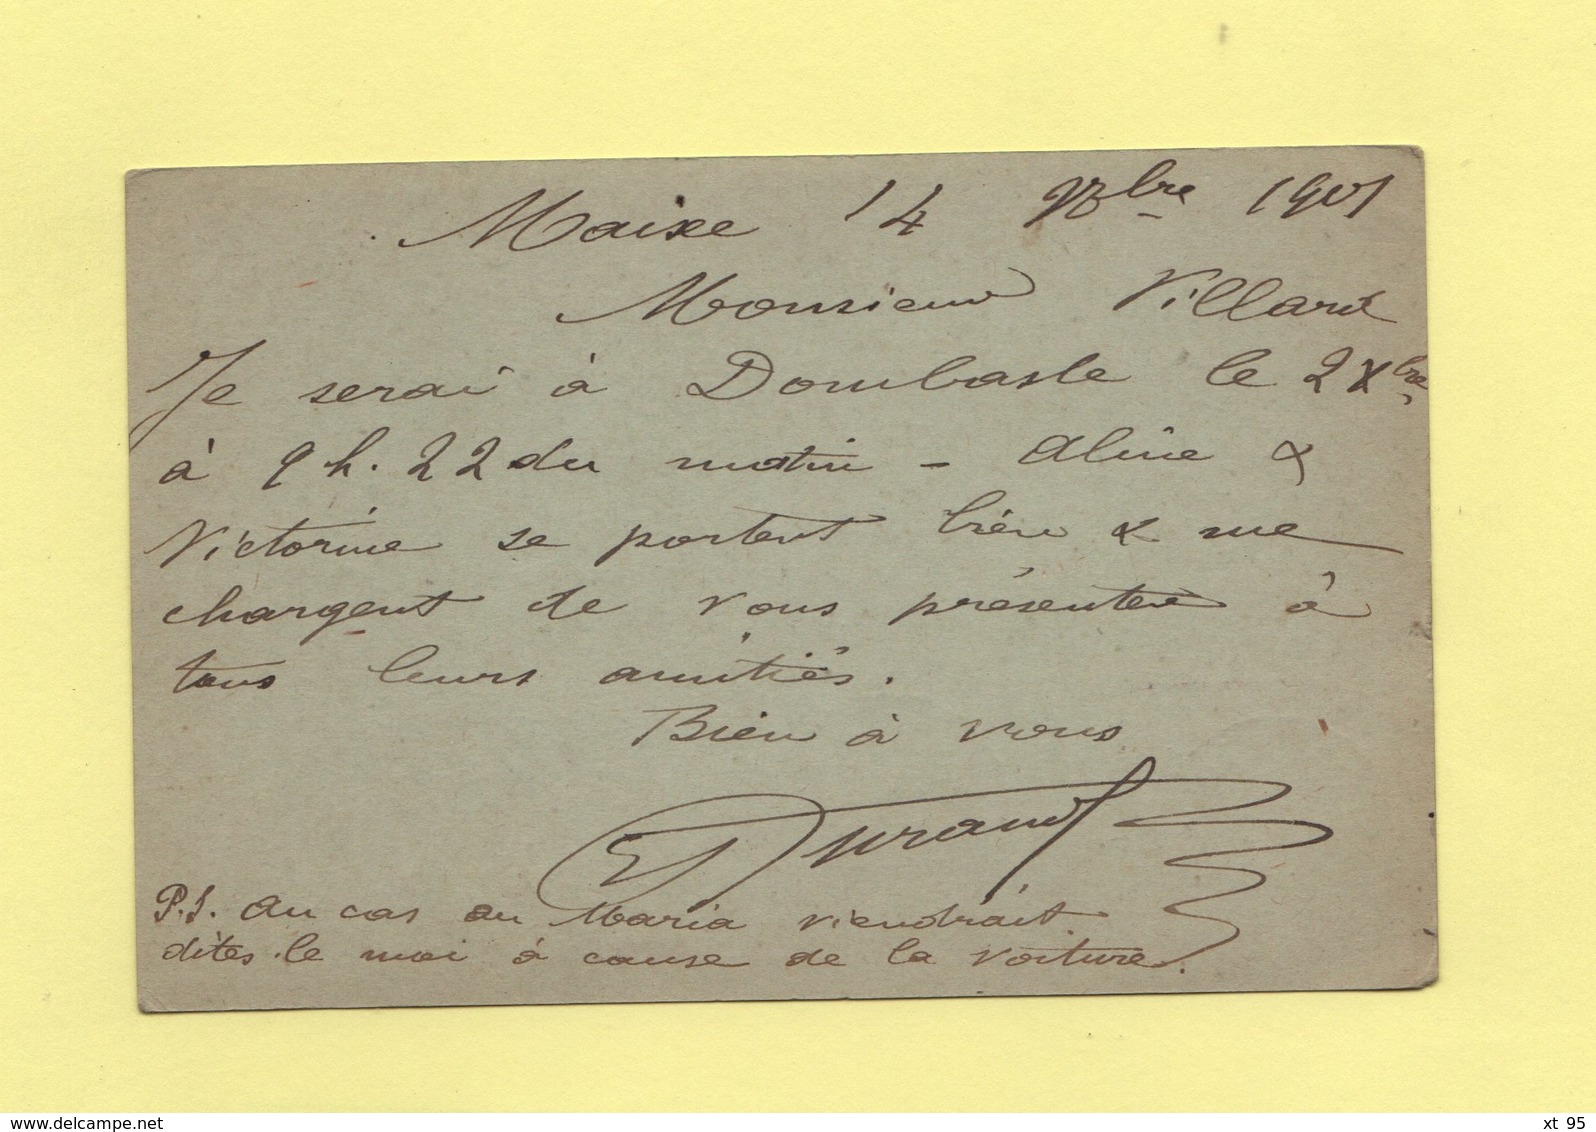 Maixe 14 9bre 1901
Monsieur Villard
Je serai à Dombasle le 2 Xbre
à 9 h. 22 du matin - Aline &
Victorine se portent bien & me
chargent de vous présenter à
tous leurs amitiés.
Bien à vous
Durand
P.S. Au cas où Maria viendrait
dites-le moi à cause de la voiture.
www.delcampe.net
xt 95